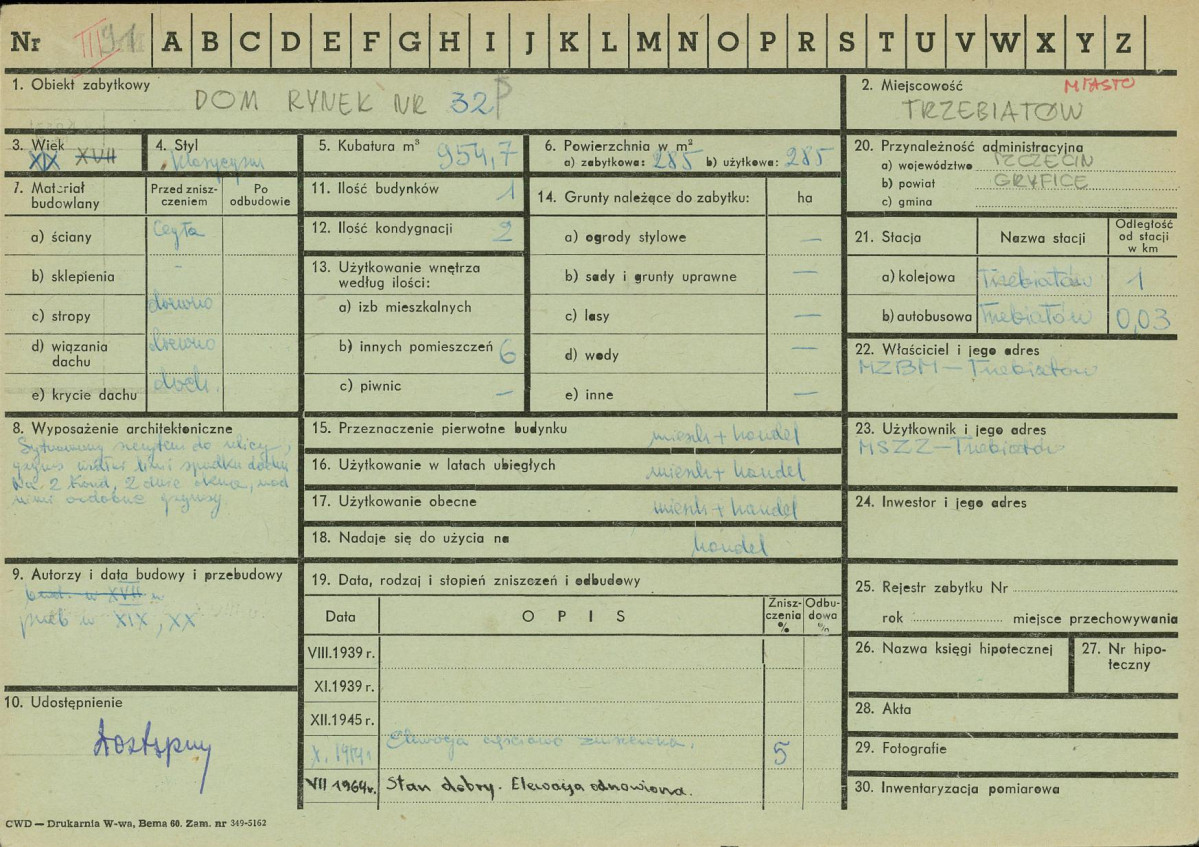 Nr III 91 A B C D E F G H I J K L M N O P R S T U V W X Y Z
1. Obiekt zabytkowy
DOM RYNEK NR 32
2. Miejscowość MIASTO
TRZEBIATÓW
3. Wiek
XIX XVII
4. Styl
klasycyzm
5. Kubatura m³ 954,7
6. Powierzchnia w m²
a) zabytkowa: 285 b) użytkowa: 285
20. Przynależność administracyjna
a) województwo SZCZECIN
b) powiat GRYFICE
c) gmina
7. Materiał budowlany
Przed zniszczeniem
Po odbudowie
a) ściany Cegła
b) sklepienia -
c) stropy drewno
d) wiązania dachu drewno
e) krycie dachu dach.
11. Ilość budynków 1
12. Ilość kondygnacji 2
13. Użytkowanie wnętrza
według ilości:
a) izb mieszkalnych
b) innych pomieszczeń 6
c) piwnic —
14. Grunty należące do zabytku: ha
a) ogrody stylowe —
b) sady i grunty uprawne —
c) lasy —
d) wody —
e) inne —
21. Stacja Nazwa stacji
Odległość
od stacji
w km
a) kolejowa Trzebiatów 1
b) autobusowa Trzebiatów 0,03
22. Właściciel i jego adres
MZBM — Trzebiatów
8. Wyposażenie architektoniczne
Sytuowany szczytem do ulicy,
gzyms wzdłuż linii spadku dachu
Na 2 kond. 2 duże okna, nad
nimi ozdobne gzymsy
15. Przeznaczenie pierwotne budynku mieszk + handel
16. Użytkowanie w latach ubiegłych mieszk + handel
17. Użytkowanie obecne mieszk + handel
18. Nadaje się do użycia na handel
23. Użytkownik i jego adres
MSZZ — Trzebiatów
24. Inwestor i jego adres
9. Autorzy i data budowy i przebudowy
bud. w XVII w
przeb w XIX, XX
10. Udostępnienie
dostępny
19. Data, rodzaj i stopień zniszczeń i odbudowy
Data OPIS
Zniszczenia
%
Odbudowa
%
VIII.1939 r.
XI.1939 r.
XII.1945 r.
Elewacja częściowo zniszczona. 5
VII 1964r. Stan dobry. Elewacja odnowiona.
25. Rejestr zabytku Nr
rok miejsce przechowywania
26. Nazwa księgi hipotecznej
27. Nr hipoteczny
28. Akta
29. Fotografie
30. Inwentaryzacja pomiarowa
CWD — Drukarnia W-wa, Bema 60. Zam. nr 349-5162